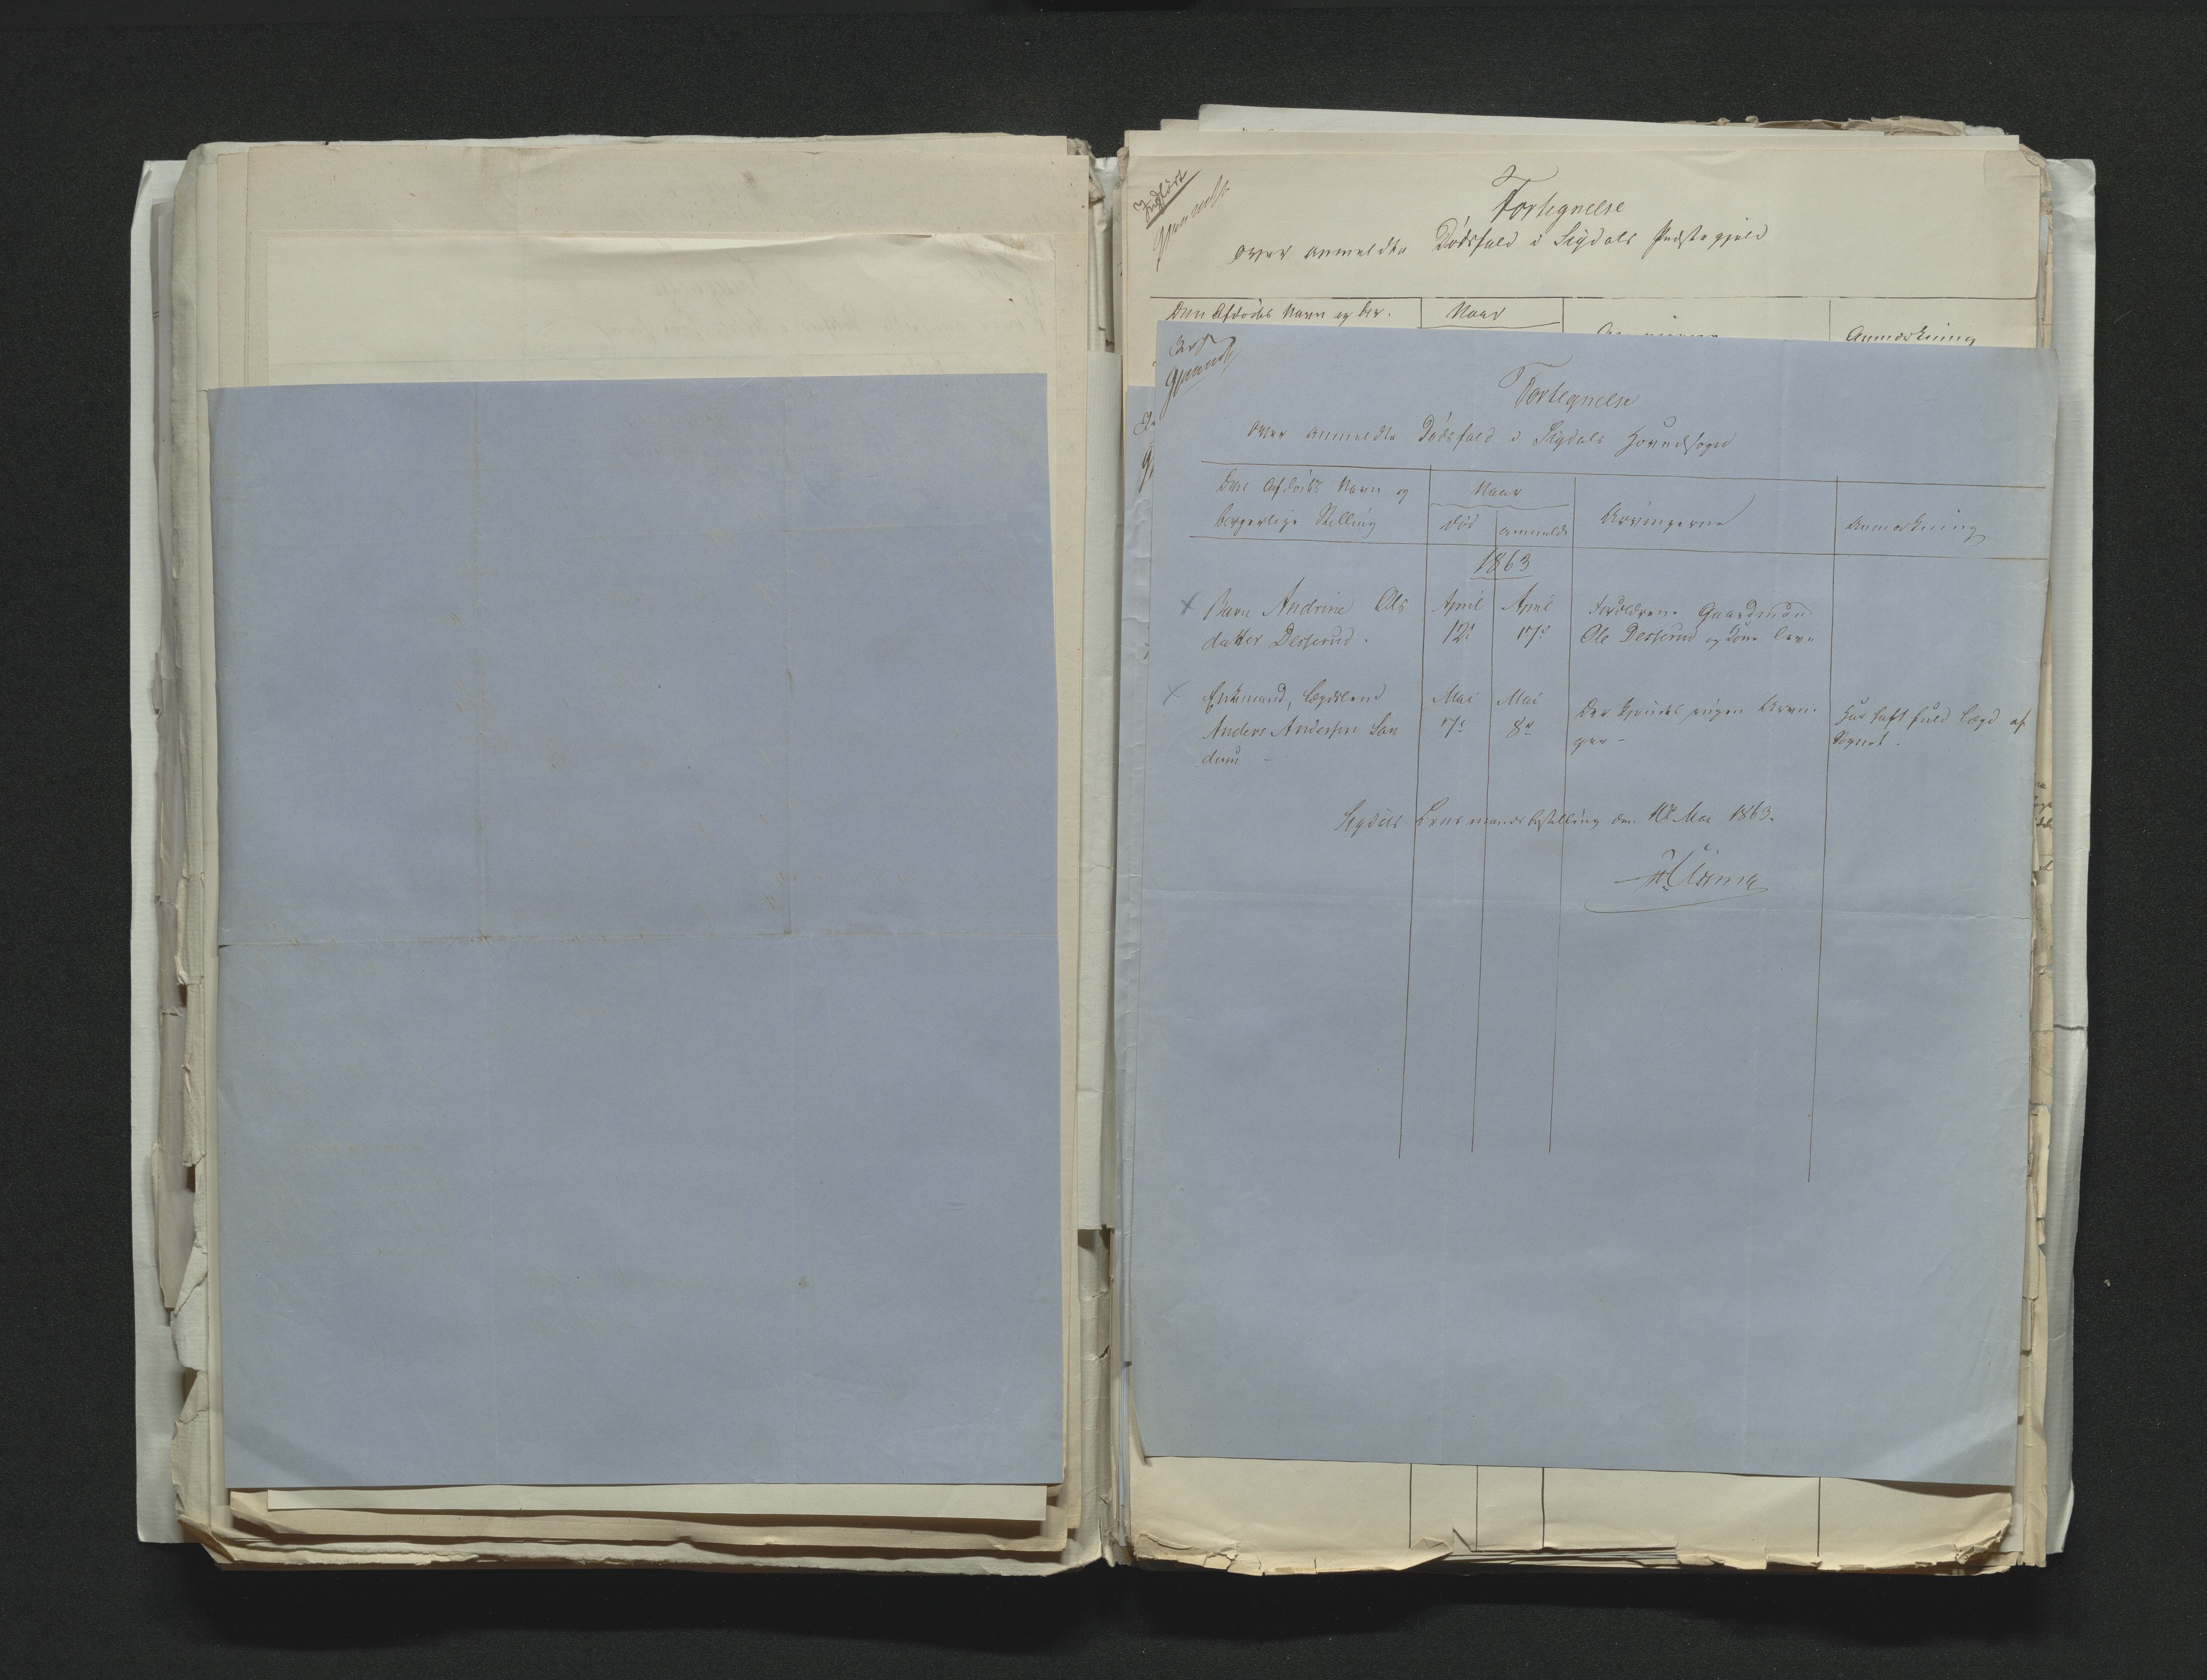 Indført
Fortegnelse
over anmeldte Dødsfald i Sigdals Præstegjeld
Den Afdødes Navn og bor.
Naar
Anmærkning
Fortegnelse
over anmeldte Dødsfald i Sigdals Hovedsogn
Den Afdødes Navn og
borgerlige Stilling
Naar
død
anmeldt
Arvingerne
Anmærkning
1863
Barn Andrine Ols
datter Desserud.
April
12'
April
17'
Forældrene Gaardmand
Ole Desserud og Kone leve
Enkemand, Lægdslem
Anders Andersen San
dum -
Mai
7'
Mai
8'
Der kjendes ingen Arvin-
ger -
Har haft fuld Lægd af
Sognet.
Sigdals Lensmandsbestilling den Mai 1863.